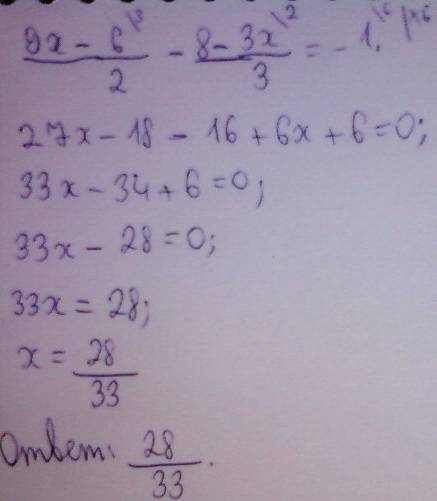 (9x - 6)/2 \3 - (8 - 3x)/3 \2 = - 1. \6 | ×6
27x - 18 - 16 + 6x + 6 = 0;
33x - 34 + 6 = 0;
33x - 28 = 0;
33x = 28;
x = 28/33
Ответ: 28/33.